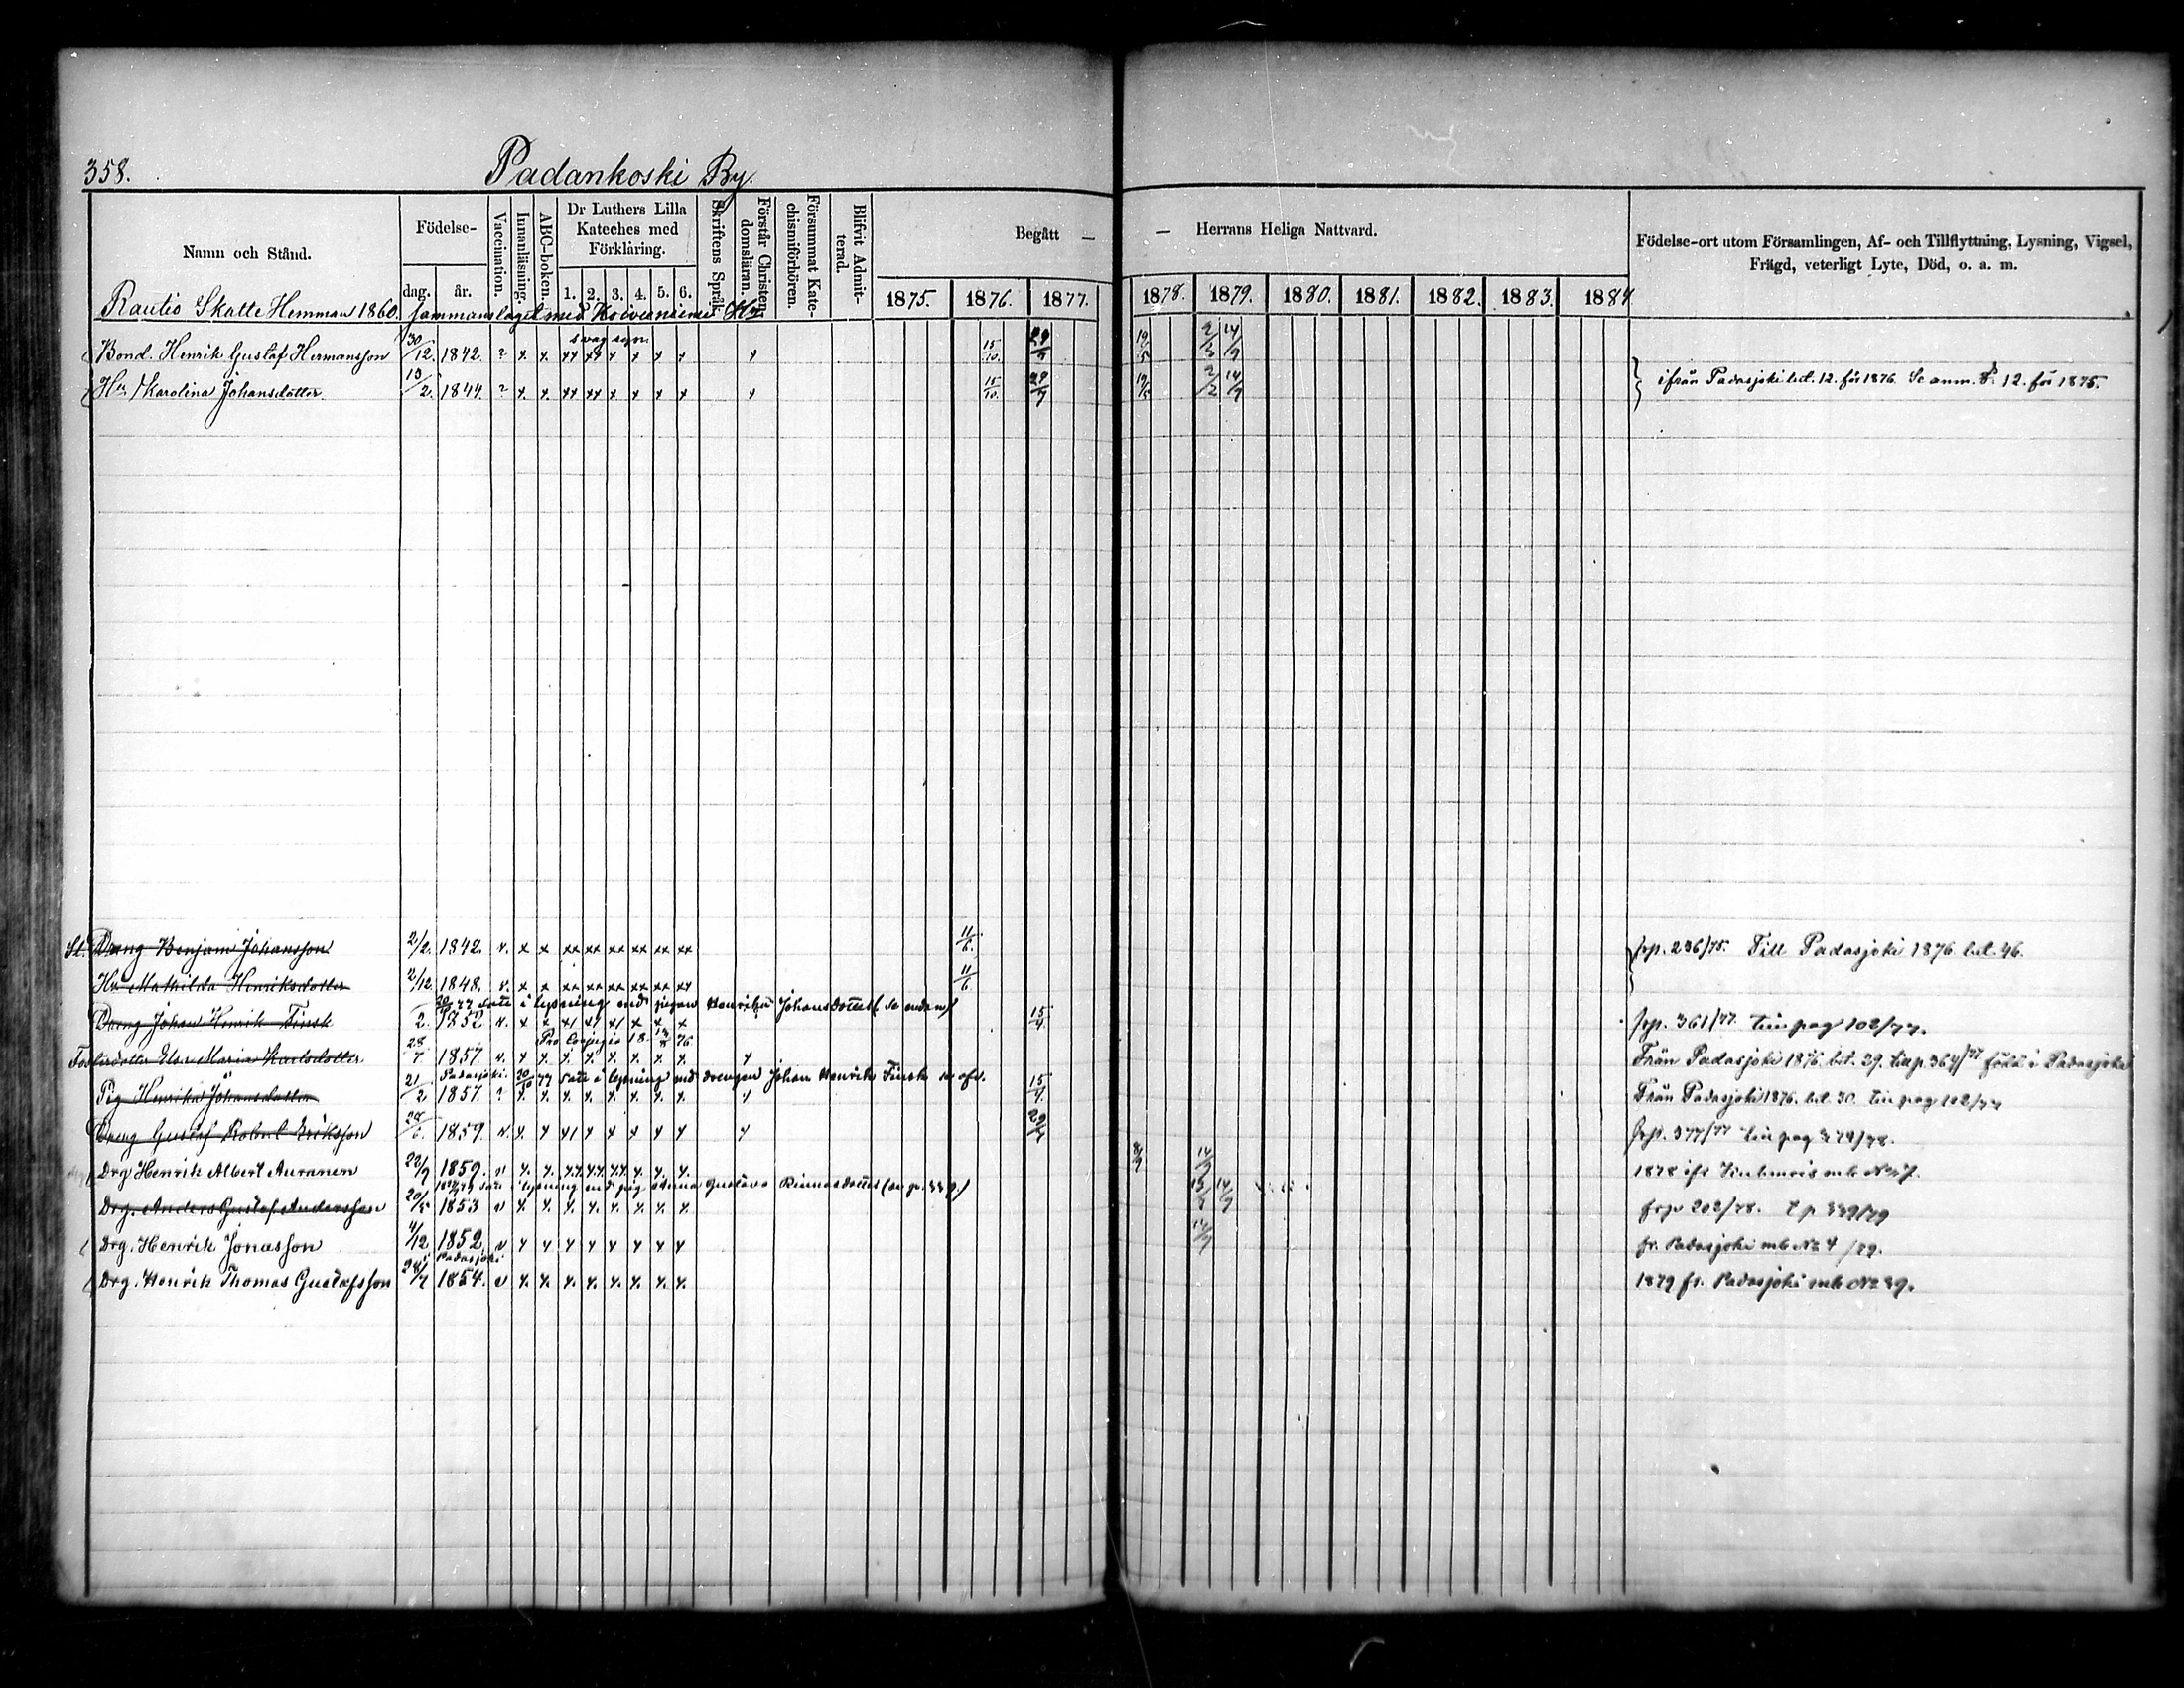 358. Padankoski By.
Namn och Stånd. Födelse- dag. år. Vaccination. Innanläsning. ABC-boken. Dr Luthers Lilla Kateches med Förklaring. 1. 2. 3. 4. 5. 6. Skriftens Språk. Förstår Christendomsläran. Försummat Katechismiförhören. Blifvit Admitterad. Begått — — Herrans Heliga Nattvard. 1875. 1876. 1877. 1878. 1879. 1880. 1881. 1882. 1883. 1884. Födelse-ort utom Församlingen, Af- och Tillflyttning, Lysning, Vigsel, Frägd, veterligt Lyte, Död, o. a. m.
Rautio Skatte Hemman 1860. sammanslaget med
svag syn.
Bond. Henrik Gustaf Hermansson 30/12 1842. ? x x xx xx x x x x x 15/10. 29/7 19/5 2/2 14/9
Hu Karolina Johansdotter. 13/2. 1844. ? x x xx xx x x x x x 15/10. 29/7 19/5 2/2 14/9 ifrån Padasjoki bet. 12. för 1876. Se anm. 12. för 1875.
St. Dreng Benjam Johansson 2/2. 1842. v. x x xx xx xx xx xx xx 11/6. frp. 236/75. Till Padasjoki 1876. bet. 46.
Hu Mathilda Henriksdotter 2/12 1848. v. x x xx xx xx xx xx xx 11/6.
20/10 77 sate i lysning med pigan Henrika Johansdotter (se nedan)
Dreng Johan Henrik Finsk 2. 1852 v. x x x1 x1 x1 x x x 15/4. frp. 361/77. till pag 102/77.
Pro Conjugio 18 76
Fosterdotter Elsa Maria Karlsdotter 28/7 1857. v. x x x x x x x x x Från Padasjoki 1876. bet. 29. till p. 364/77 född i Padasjoki
Padasjoki. 20/10 77 sate i lysning med drengen Johan Henrik Finsk se ofv.
Pig Henrika Johansdotter 21/2 1857. ? x x x x x x x x x 15/4. Från Padasjoki 1876. bet. 30. till pag 102/77
Dreng Gustaf Robert Eriksson 28/6. 1859. v. x x x1 x x x x x x 29/7 frp. 377/77 till pag 374/78.
Drg Henrik Albert Auranen 23/9 1859. v x. x. xx xx xx x. x. x. 8/9 14/9 1878 ifr
sate i lysning med pig Gustava (se p. 339)
Drg. Anders Gustaf Andersson 20/5 1853 v x. x. x. x. x. x. x. x. 13/4 14/9 frp 202/78. t p 339/79
Drg. Henrik Jonasson 4/12 1852 v x x x x x x x x 14/9 fr. Padasjoki mb No 4 /79.
Padasjoki
Drg. Henrik Thomas Gustafsson 28/7 1854. v x. x. x. x. x. x. x. x. 1879 fr. Padasjoki mb No 39.